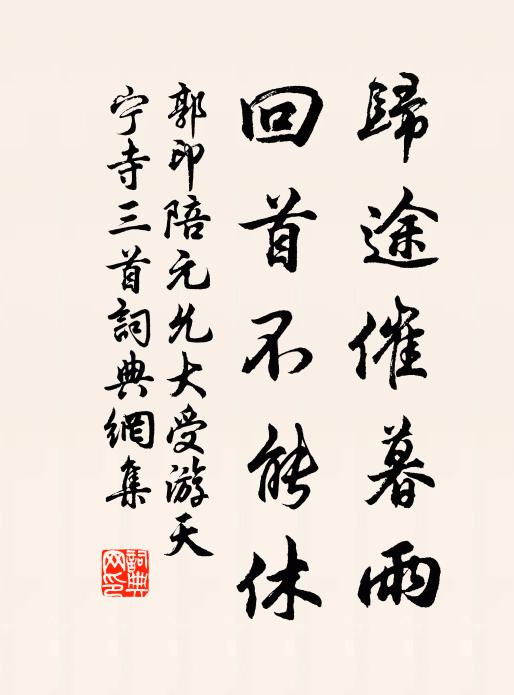 歸途催暮雨
回首不能休
郭印陪元允大受游天
宁寺三首詞典網集
詞典
网印